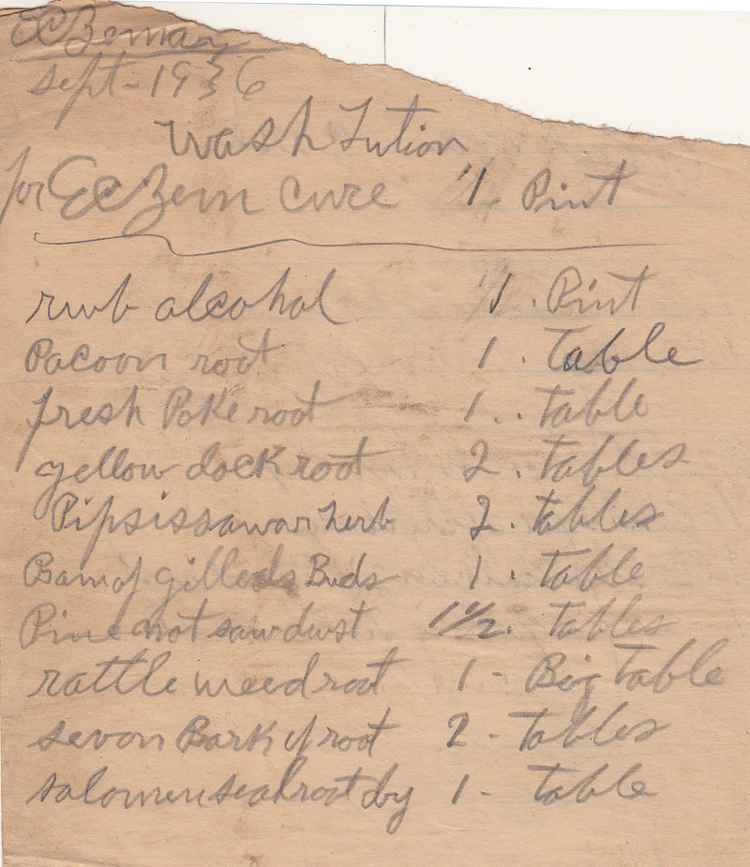 ECZemar
sept-1936
wash Lution
for ECZem cure 1 Pint
rub alcohal 1. Pint
Pacoon root 1. Table
fresh Poke root 1.. Table
yellow dock root 2. Tables
Pipsissawar herb 2. tables
Bam of gilleds Buds 1. Table
Pine not sawdust 1 1/2. Tables
rattle weed root 1- Big Table
sevon Bark of root 2- Tables
salomen seal root by 1- Table